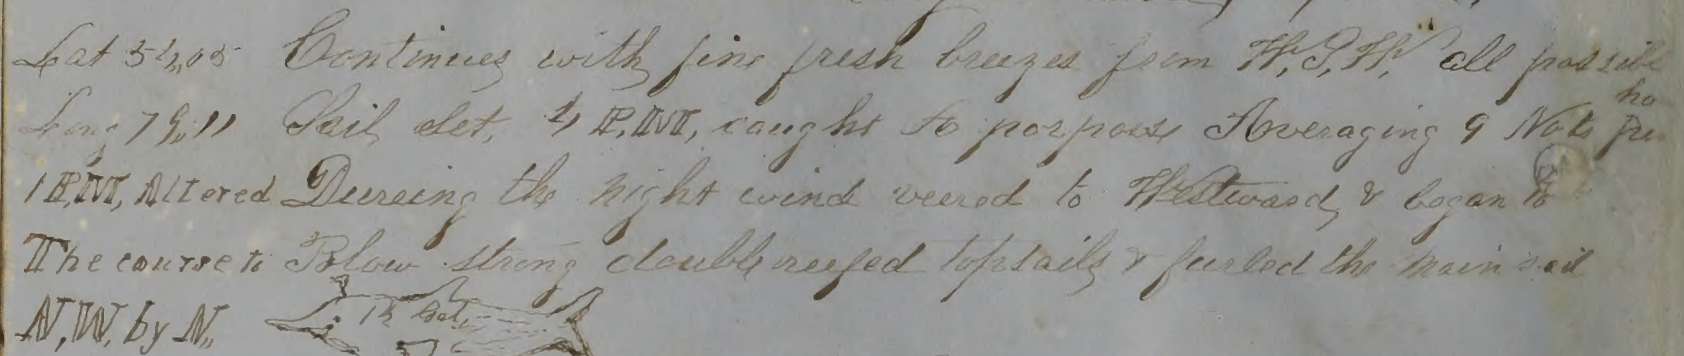 Lat 54,,05 Continues with fine fresh breezes from W,S,W, all possible
Long 79,,11 Sail Set, 4 P,M, caught to porpouse Averaging 9 Nots per ho
1 P,M, Altered Dureing the night wind veered to Westward, & began to
The course to Blow strong double reefed topsails & furled the mainsail
N,W, by N,,